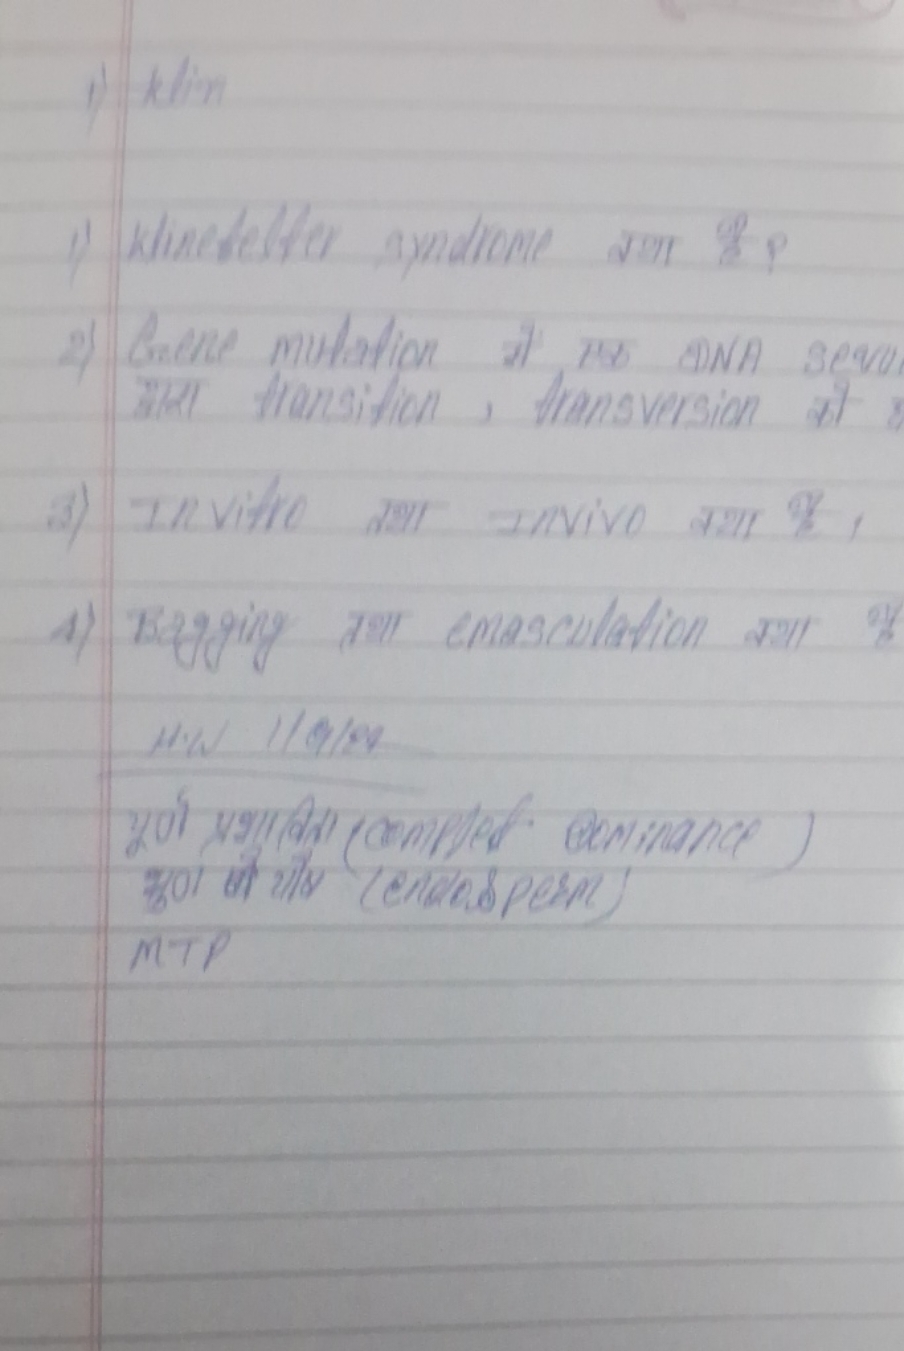 1) klin
1) klinefelter syndrome क्या है?
2) Gene mutation में एक DNA
द्वारा transition, transversion को
3) Invitro तथा Invivo क्या है,
4) Bagging तथा emasculation क्या है
H.W 1/9/24
पूर्ण प्रभाविता (complet. Dominance)
भ्रूण (endosperm)
MTP